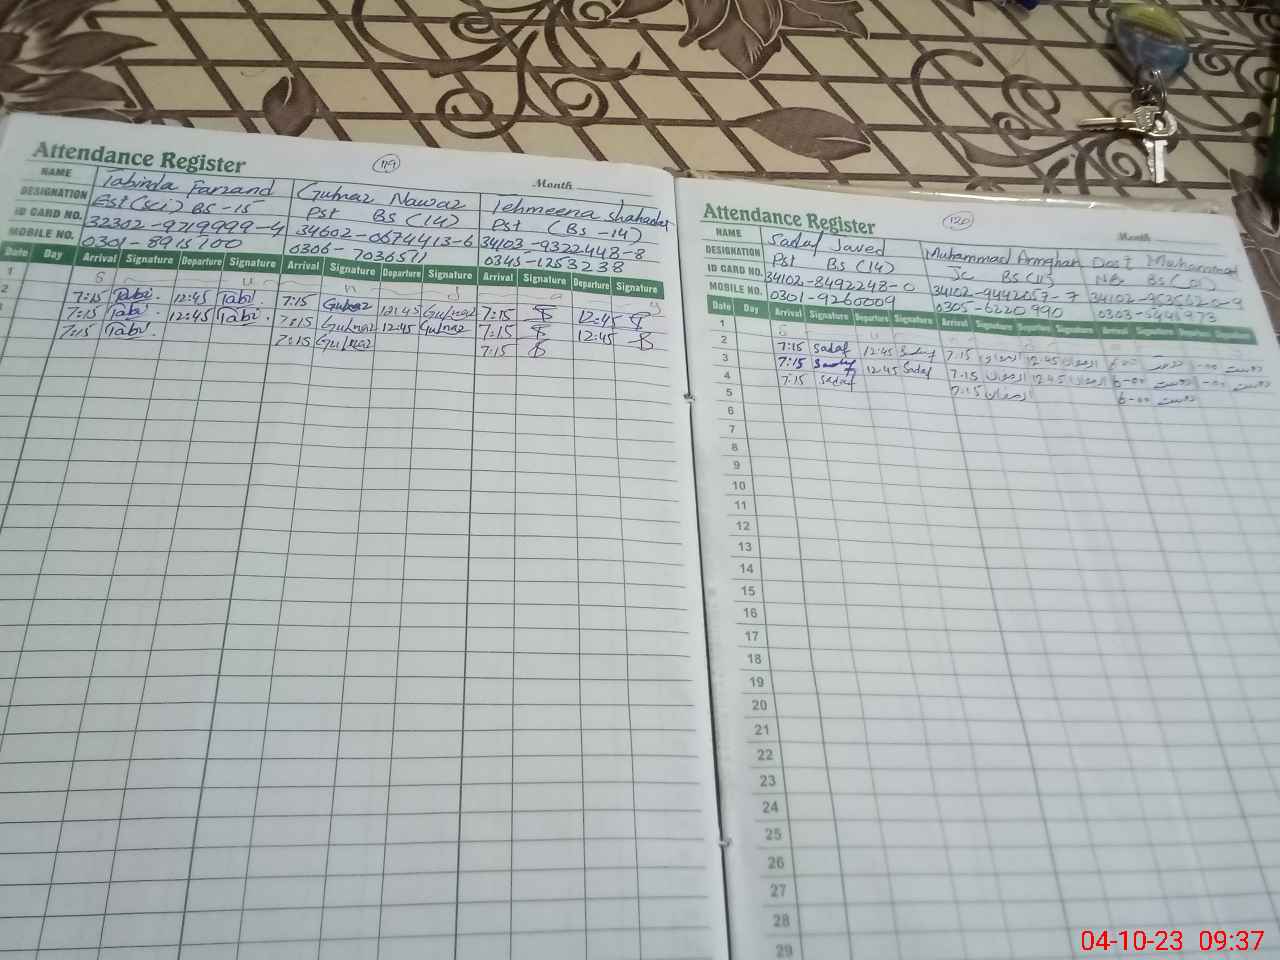 Attendance Register
119
Month
NAME Tabinda Farzand Gulnaz Nawaz Tehmeena Shahadat
DESIGNATION Est(Sci) BS-15 Pst BS(14) Pst (BS-14)
ID CARD NO. 32302-9719999-4 34602-0674413-6 34103-9322448-8
MOBILE NO. 0301-8915700 0306-7036511 0345-1253238
Date Day Arrival Signature Departure Signature Arrival Signature Departure Signature Arrival Signature Departure Signature
1 S u n d a y
2 7:15 Tabi. 12:45 Tabi. 7:15 Gulnaz 12:45 Gulnaz 7:15 12:45
7:15 Tabi. 12:45 Tabi. 7:15 Gulnaz 12:45 Gulnaz 7:15 12:45
7:15 Tabi. 7:15 Gulnaz 7:15
Attendance Register
120
Month
NAME Sadaf Javed Muhammad Armghan Dost Muhammad
DESIGNATION Pst BS(14) JC BS(11) BS
ID CARD NO. 34102-8492248-0 34102-9442057-7
MOBILE NO. 0301-9260009 0305-6220990
Date Day Arrival Signature Departure Signature Arrival Signature Departure Signature Arrival Signature Departure Signature
1
2 7:15 Sadaf 12:45 Sadaf 7:15 12:45 6:00 دوست 1:00 دوست
3 7:15 Sadaf 12:45 Sadaf 7:15 12:45 6:00 دوست 1:00 دوست
4 7:15 Sadaf 7:15 6:00 دوست
5
6
7
8
9
10
11
12
13
14
15
16
17
18
19
20
21
22
23
24
25
26
27
28
29
04-10-23 09:37